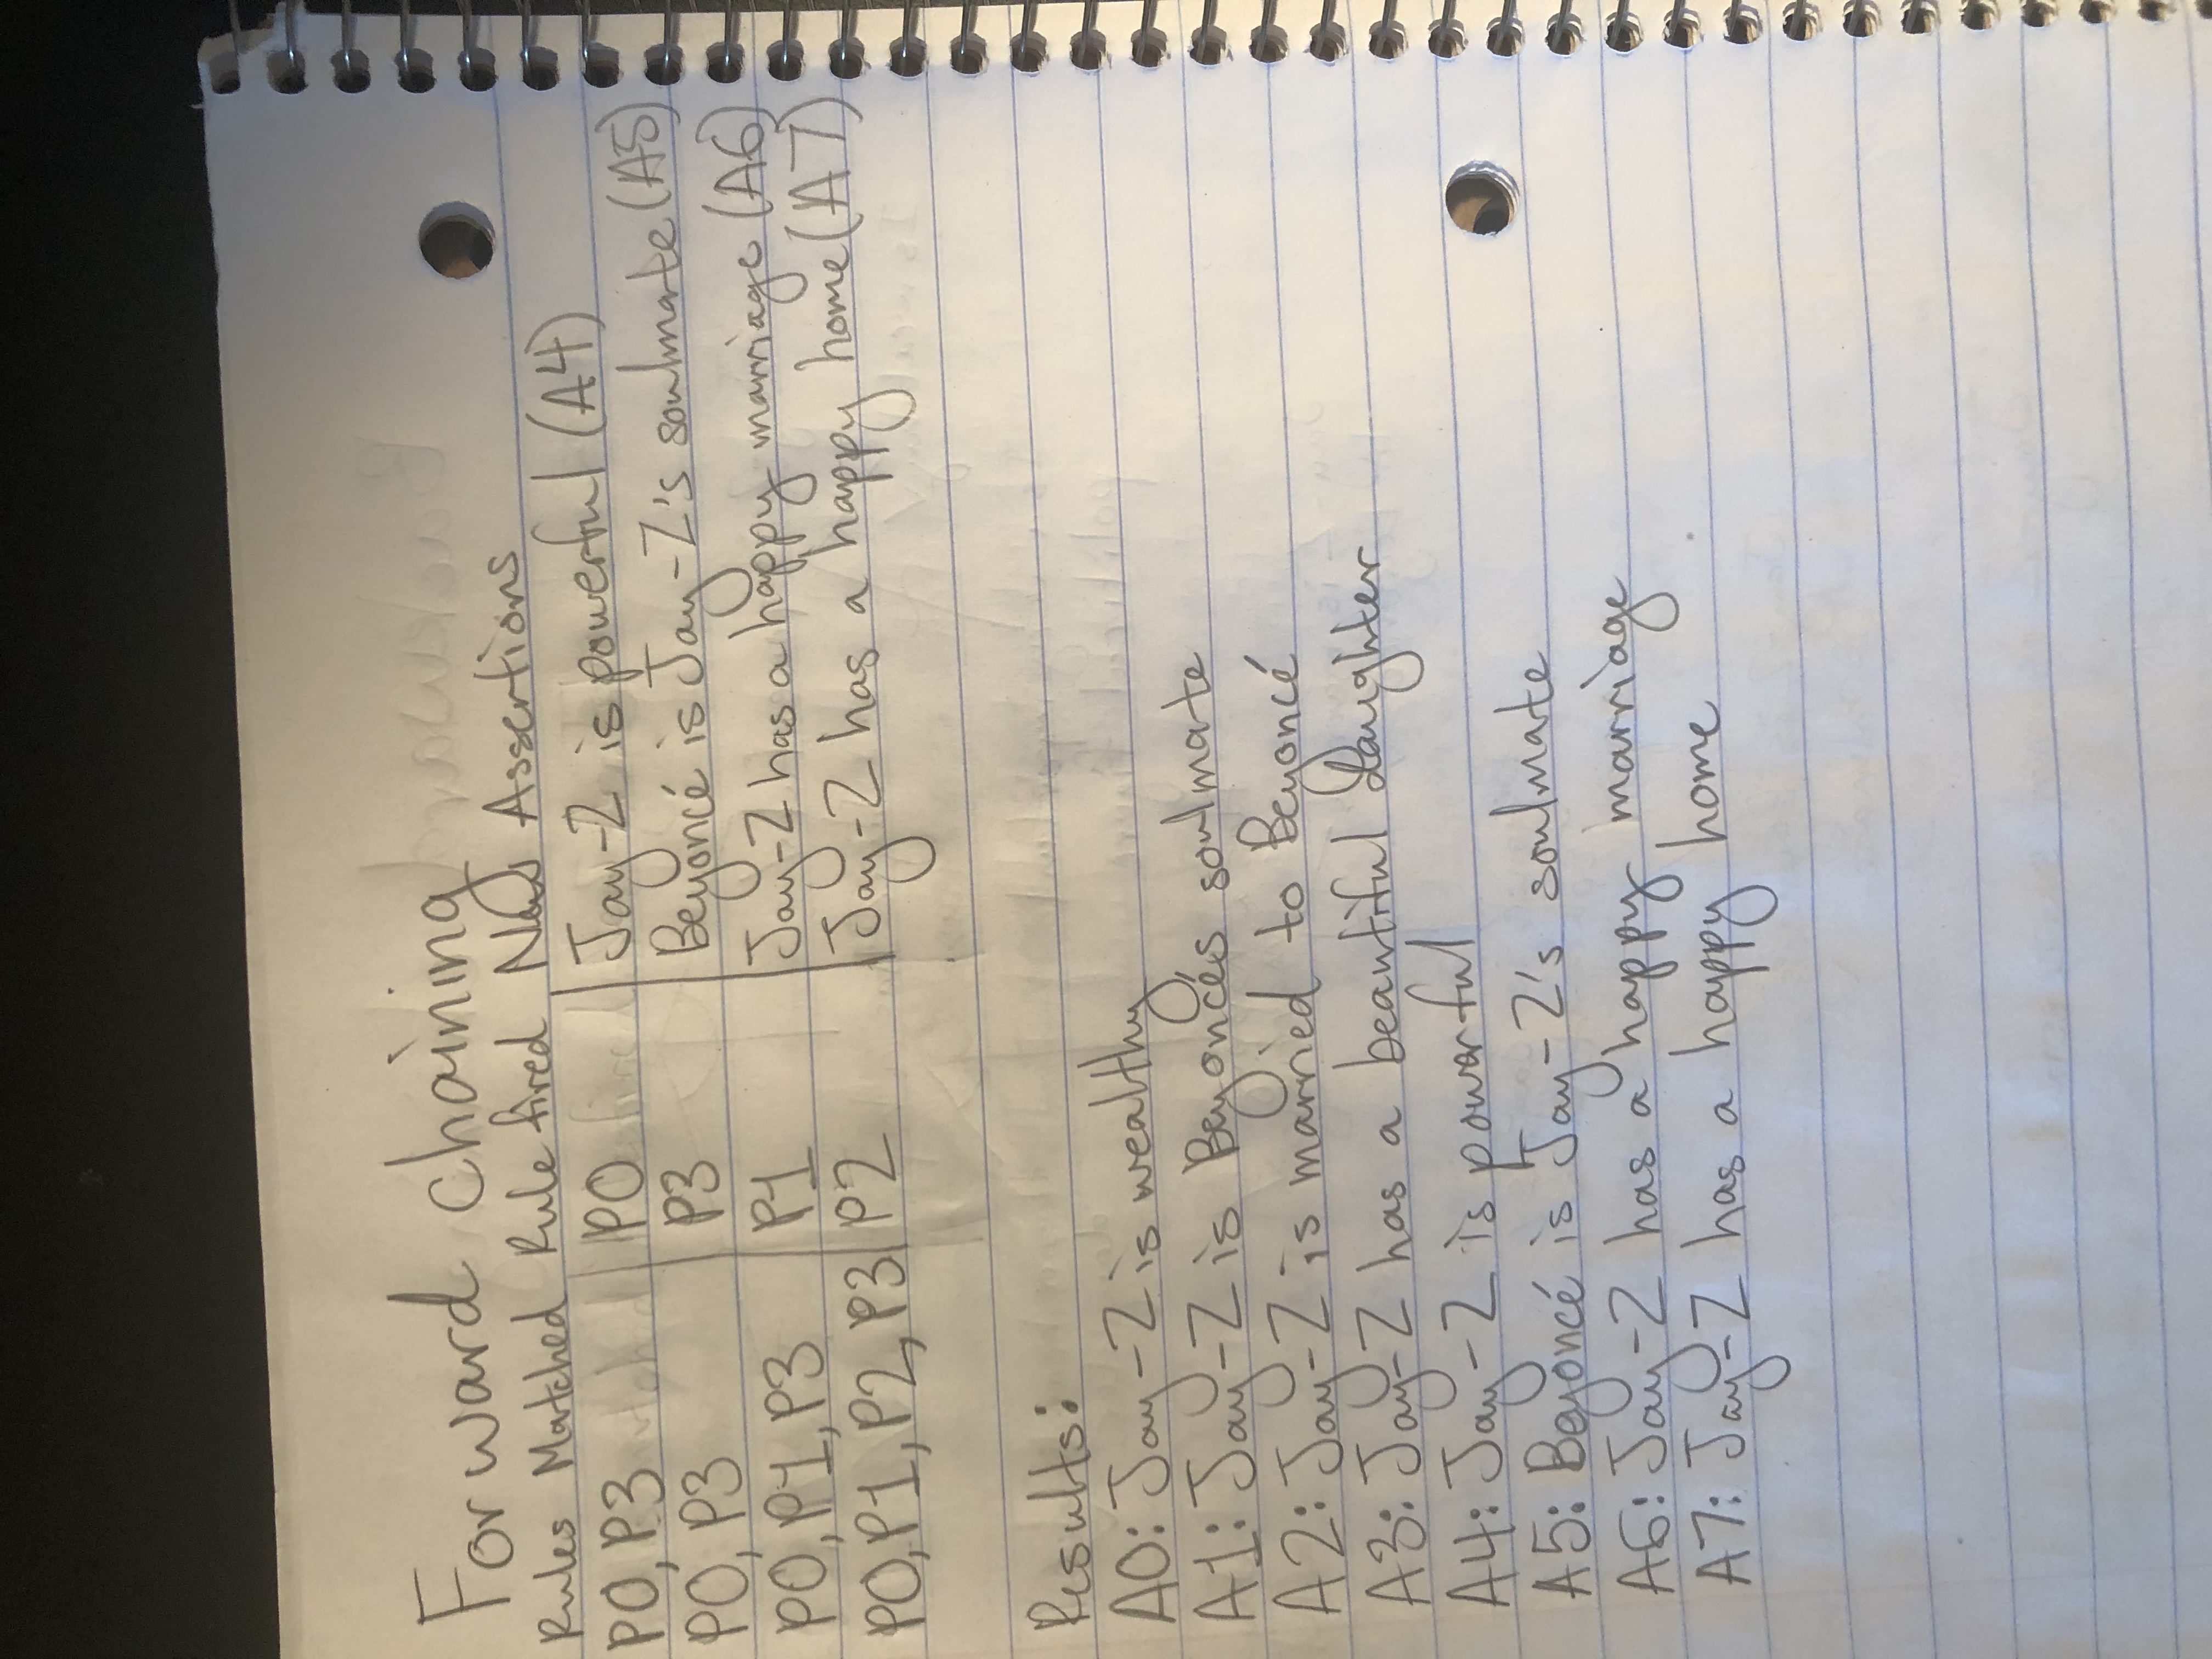 Forward chaining
Rules Matched Rule fired New Assertions
P0, P3 P0 Jay-Z is powerful (A4)
P0, P3 P3 Beyoncé is Jay-Z's soulmate (A5)
P0, P1, P3 P1 Jay-Z has a happy marriage (A6)
P0, P1, P2, P3 P2 Jay-Z has a happy home (A7)
Results:
A0: Jay-Z is wealthy
A1: Jay-Z is Beyoncés soulmate
A2: Jay-Z is married to Beyoncé
A3: Jay-Z has a beautiful daughter
A4: Jay-Z is powerful
A5: Beyoncé is Jay-Z's soulmate
A6: Jay-Z has a happy marriage
A7: Jay-Z has a happy home